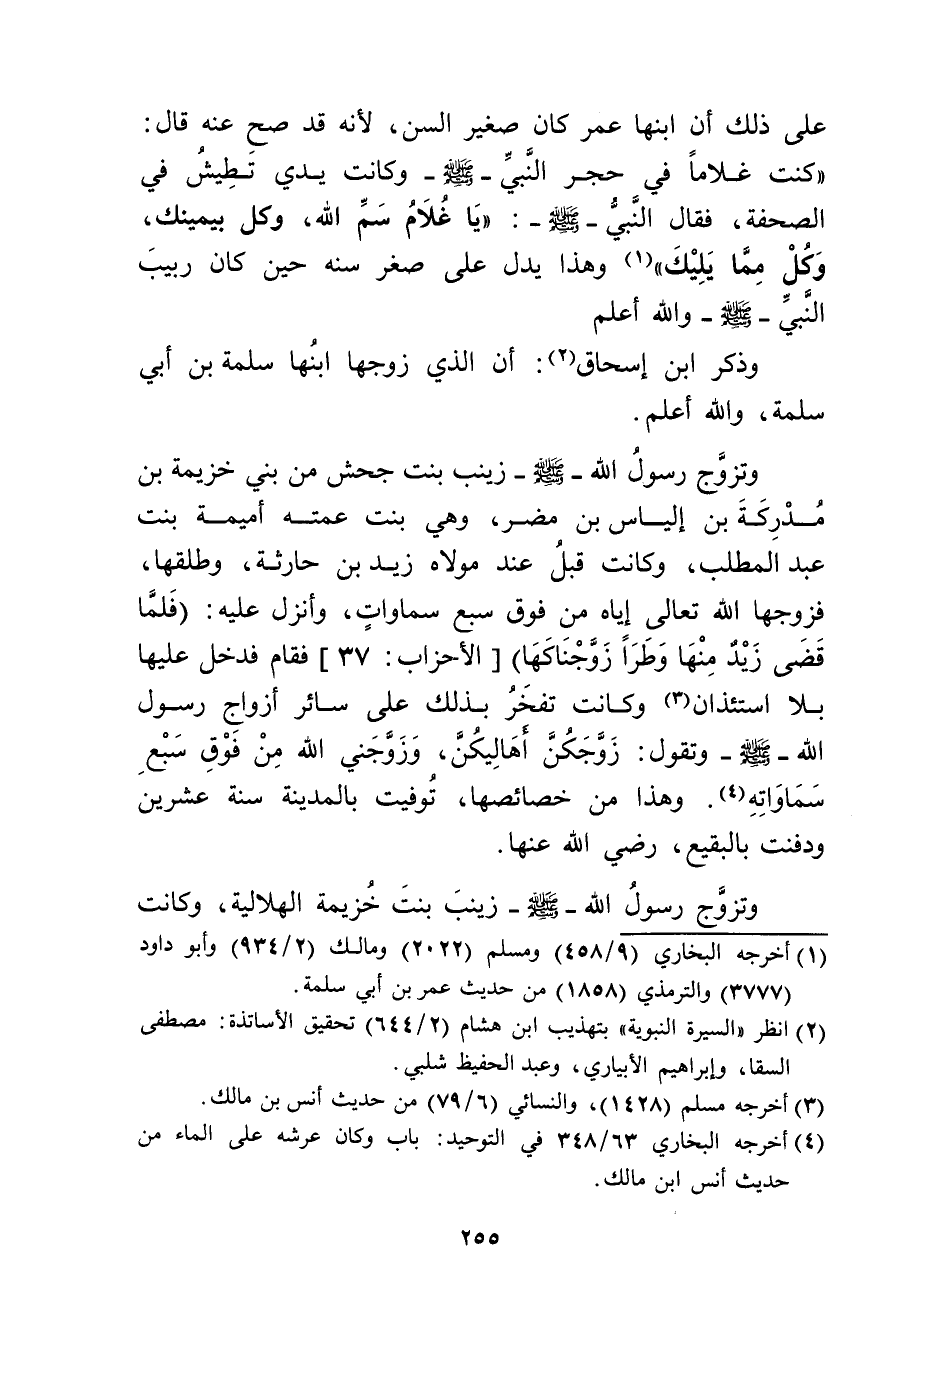 على ذلك أن ابنها عمر كان صغير السن، لأنه قد صح عنه قال:
«كنت غلاماً في حجر النَّبيِّ - ﷺ - وكانت يدي تَطِيشُ في
الصحفة، فقال النَّبيُّ - ﷺ - : «يَا غُلَامُ سَمِّ الله، وكل بيمينك،
وَكُلْ مِمَّا يَلِيْكَ»(١) وهذا يدل على صغر سنه حين كان ربيبَ
النَّبيِّ - ﷺ - والله أعلم
وذكر ابن إسحاق(٢): أن الذي زوجها ابنُها سلمة بن أبي
سلمة، والله أعلم.
وتزوَّج رسولُ الله - ﷺ - زينب بنت جحش من بني خزيمة بن
مُدْرِكَةَ بن إلياس بن مضر، وهي بنت عمته أميمة بنت
عبد المطلب، وكانت قبلُ عند مولاه زيد بن حارثة، وطلقها،
فزوجها الله تعالى إياه من فوق سبع سماواتٍ، وأنزل عليه: (فَلمَّا
قَضَى زَيْدٌ مِنْهَا وَطَرَاً زَوَّجْنَاكَهَا) [ الأحزاب: ٣٧ ] فقام فدخل عليها
بلا استئذان(٣) وكانت تفخَرُ بذلك على سائر أزواج رسول
الله - ﷺ - وتقول: زَوَّجَكُنَّ أَهَالِيكُنَّ، وَزَوَّجَني الله مِنْ فَوْقِ سَبْعِ
سَمَاوَاتِهِ(٤). وهذا من خصائصها، تُوفيت بالمدينة سنة عشرين
ودفنت بالبقيع، رضي الله عنها.
وتزوَّج رسولُ الله - ﷺ - زينبَ بنتَ خُزيمة الهلالية، وكانت
(١) أخرجه البخاري (٤٥٨/٩) ومسلم (٢٠٢٢) ومالك (٩٣٤/٢) وأبو داود
(٣٧٧٧) والترمذي (١٨٥٨) من حديث عمر بن أبي سلمة.
(٢) انظر «السيرة النبوية» بتهذيب ابن هشام (٦٤٤/٢) تحقيق الأساتذة: مصطفى
السقا، وإبراهيم الأبياري، وعبد الحفيظ شلبي.
(٣) أخرجه مسلم (١٤٢٨)، والنسائي (٧٩/٦) من حديث أنس بن مالك.
(٤) أخرجه البخاري ٣٤٨/٦٣ في التوحيد: باب وكان عرشه على الماء من
حديث أنس ابن مالك.
٢٥٥